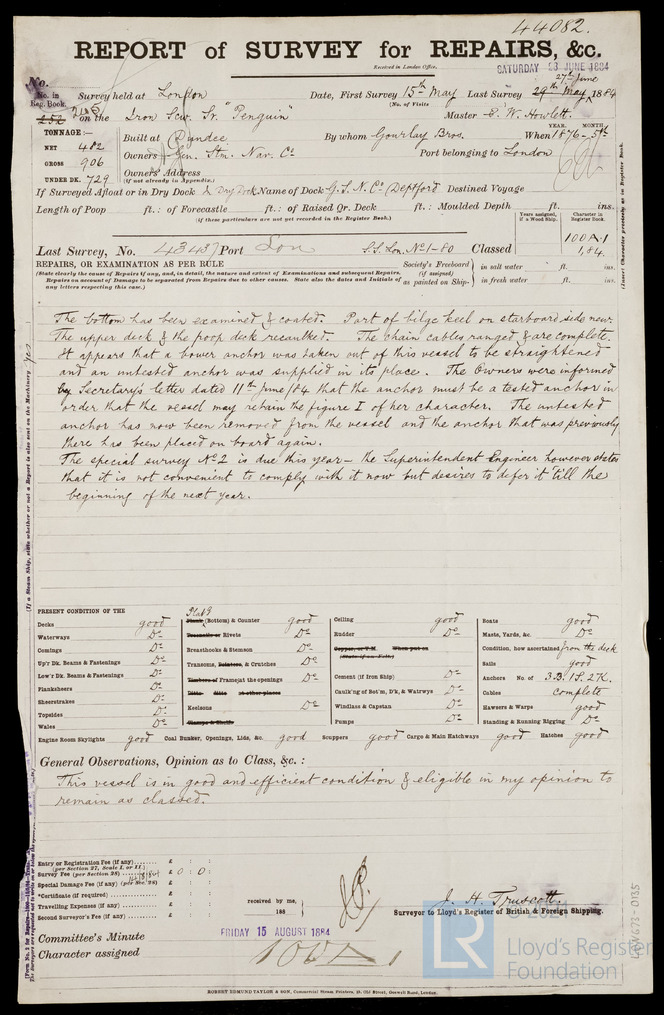 44082.
REPORT of SURVEY for REPAIRS, &c.
Received in London Office,
SATURDAY 23 JUNE 1884
No.
No. in Reg. Book.
Survey held at London Date, First Survey 15th May Last Survey 29th May 1884
27th June
(No. of Visits
252 on the Iron Scw. Sr. "Penguin" Master E. W. Howlett.
TONNAGE:—
NET 482
GROSS 906
UNDER DK. 729
Built at Dundee By whom Gourlay Bros. When 1876 - 5th
YEAR. MONTH.
Owners Gen. Stm. Nav. Co Port belonging to London
Owners' Address
(if not already in Appendix.)
If Surveyed Afloat or in Dry Dock & Dry Dock Name of Dock G.S.N.Co Deptford Destined Voyage
Length of Poop ft. : of Forecastle ft. : of Raised Qr. Deck ft. : Moulded Depth ft. ins.
(if these particulars are not yet recorded in the Register Book.)
Years assigned, if a Wood Ship.
Character in Register Book.
Last Survey, No. 43437 Port Lon S.S. Lon. No 1-80 Classed 100A.1
1,84.
REPAIRS, OR EXAMINATION AS PER RULE
(State clearly the cause of Repairs if any, and, in detail, the nature and extent of Examinations and subsequent Repairs.
Repairs on account of Damage to be separated from Repairs due to other causes. State also the dates and Initials of any letters respecting this case.)
Society's Freeboard (if assigned) as painted on Ship—
in salt water ft. ins.
in fresh water ft. ins.
The bottom has been examined & coated. Part of bilge keel on starboard side new.
The upper deck & the poop deck recaulked. The chain cables ranged & are complete.
It appears that a bower anchor was taken out of this vessel to be straightened
and an untested anchor was supplied in its place. The Owners were informed
by Secretary's letter dated 11th June/84 that the anchor must be a tested anchor in
order that the vessel may retain the figure 1 of her character. The untested
anchor has now been removed from the vessel and the anchor that was previously
there has been placed on board again.
The special survey No 2 is due this year - the Superintendent Engineer however states
that it is not convenient to comply with it now but desires to defer it till the
beginning of the next year.
PRESENT CONDITION OF THE
Decks good
Waterways Do
Comings Do
Up'r Dk. Beams & Fastenings Do
Low'r Dk. Beams & Fastenings Do
Planksheers Do
Sheerstrakes Do
Topsides Do
Wales Do
Plates
Plank (Bottom) & Counter good
Treenails or Rivets Do
Breasthooks & Stemson Do
Transoms, Pointers, & Crutches Do
Timbers of Frame, at the openings Do
Ditto ditto at other places
Keelsons Do
Clamps & Shelfs
Ceiling good
Rudder Do
Copper, or Y.M. When put on
(State if on Felt)
Cement (if Iron Ship) Do
Caulk'ng of Bot'm, D'k, & Watrwys Do
Windlass & Capstan Do
Pumps Do
Boats good
Masts, Yards, &c. Do
Condition, how ascertained from the deck
Sails good
Anchors No. of 3.B. 1S. 2K.
Cables complete
Hawsers & Warps good
Standing & Running Rigging Do
Engine Room Skylights good Coal Bunker, Openings, Lids, &c. good Scuppers good Cargo & Main Hatchways good Hatches good
General Observations, Opinion as to Class, &c. :
This vessel is in good and efficient condition & eligible in my opinion to
remain as classed.
Entry or Registration Fee (if any) £ : :
(per Section 27, Scale I. or II.)
Survey Fee (per Section 28) £ 0 : 0 :
Special Damage Fee (if any) (per Sec. 28) £ : :
Certificate (if required) £ : :
Travelling Expenses (if any) £ : :
Second Surveyor's Fee (if any) £ : :
received by me,
188
J. H. Truscott.
Surveyor to Lloyd's Register of British & Foreign Shipping.
Committee's Minute FRIDAY 15 AUGUST 1884
Character assigned 100A1
ROBERT EDMUND TAYLOR & SON, Commercial Steam Printers, 19, Old Street, Goswell Road, London.
LR
Lloyd's Register
Foundation